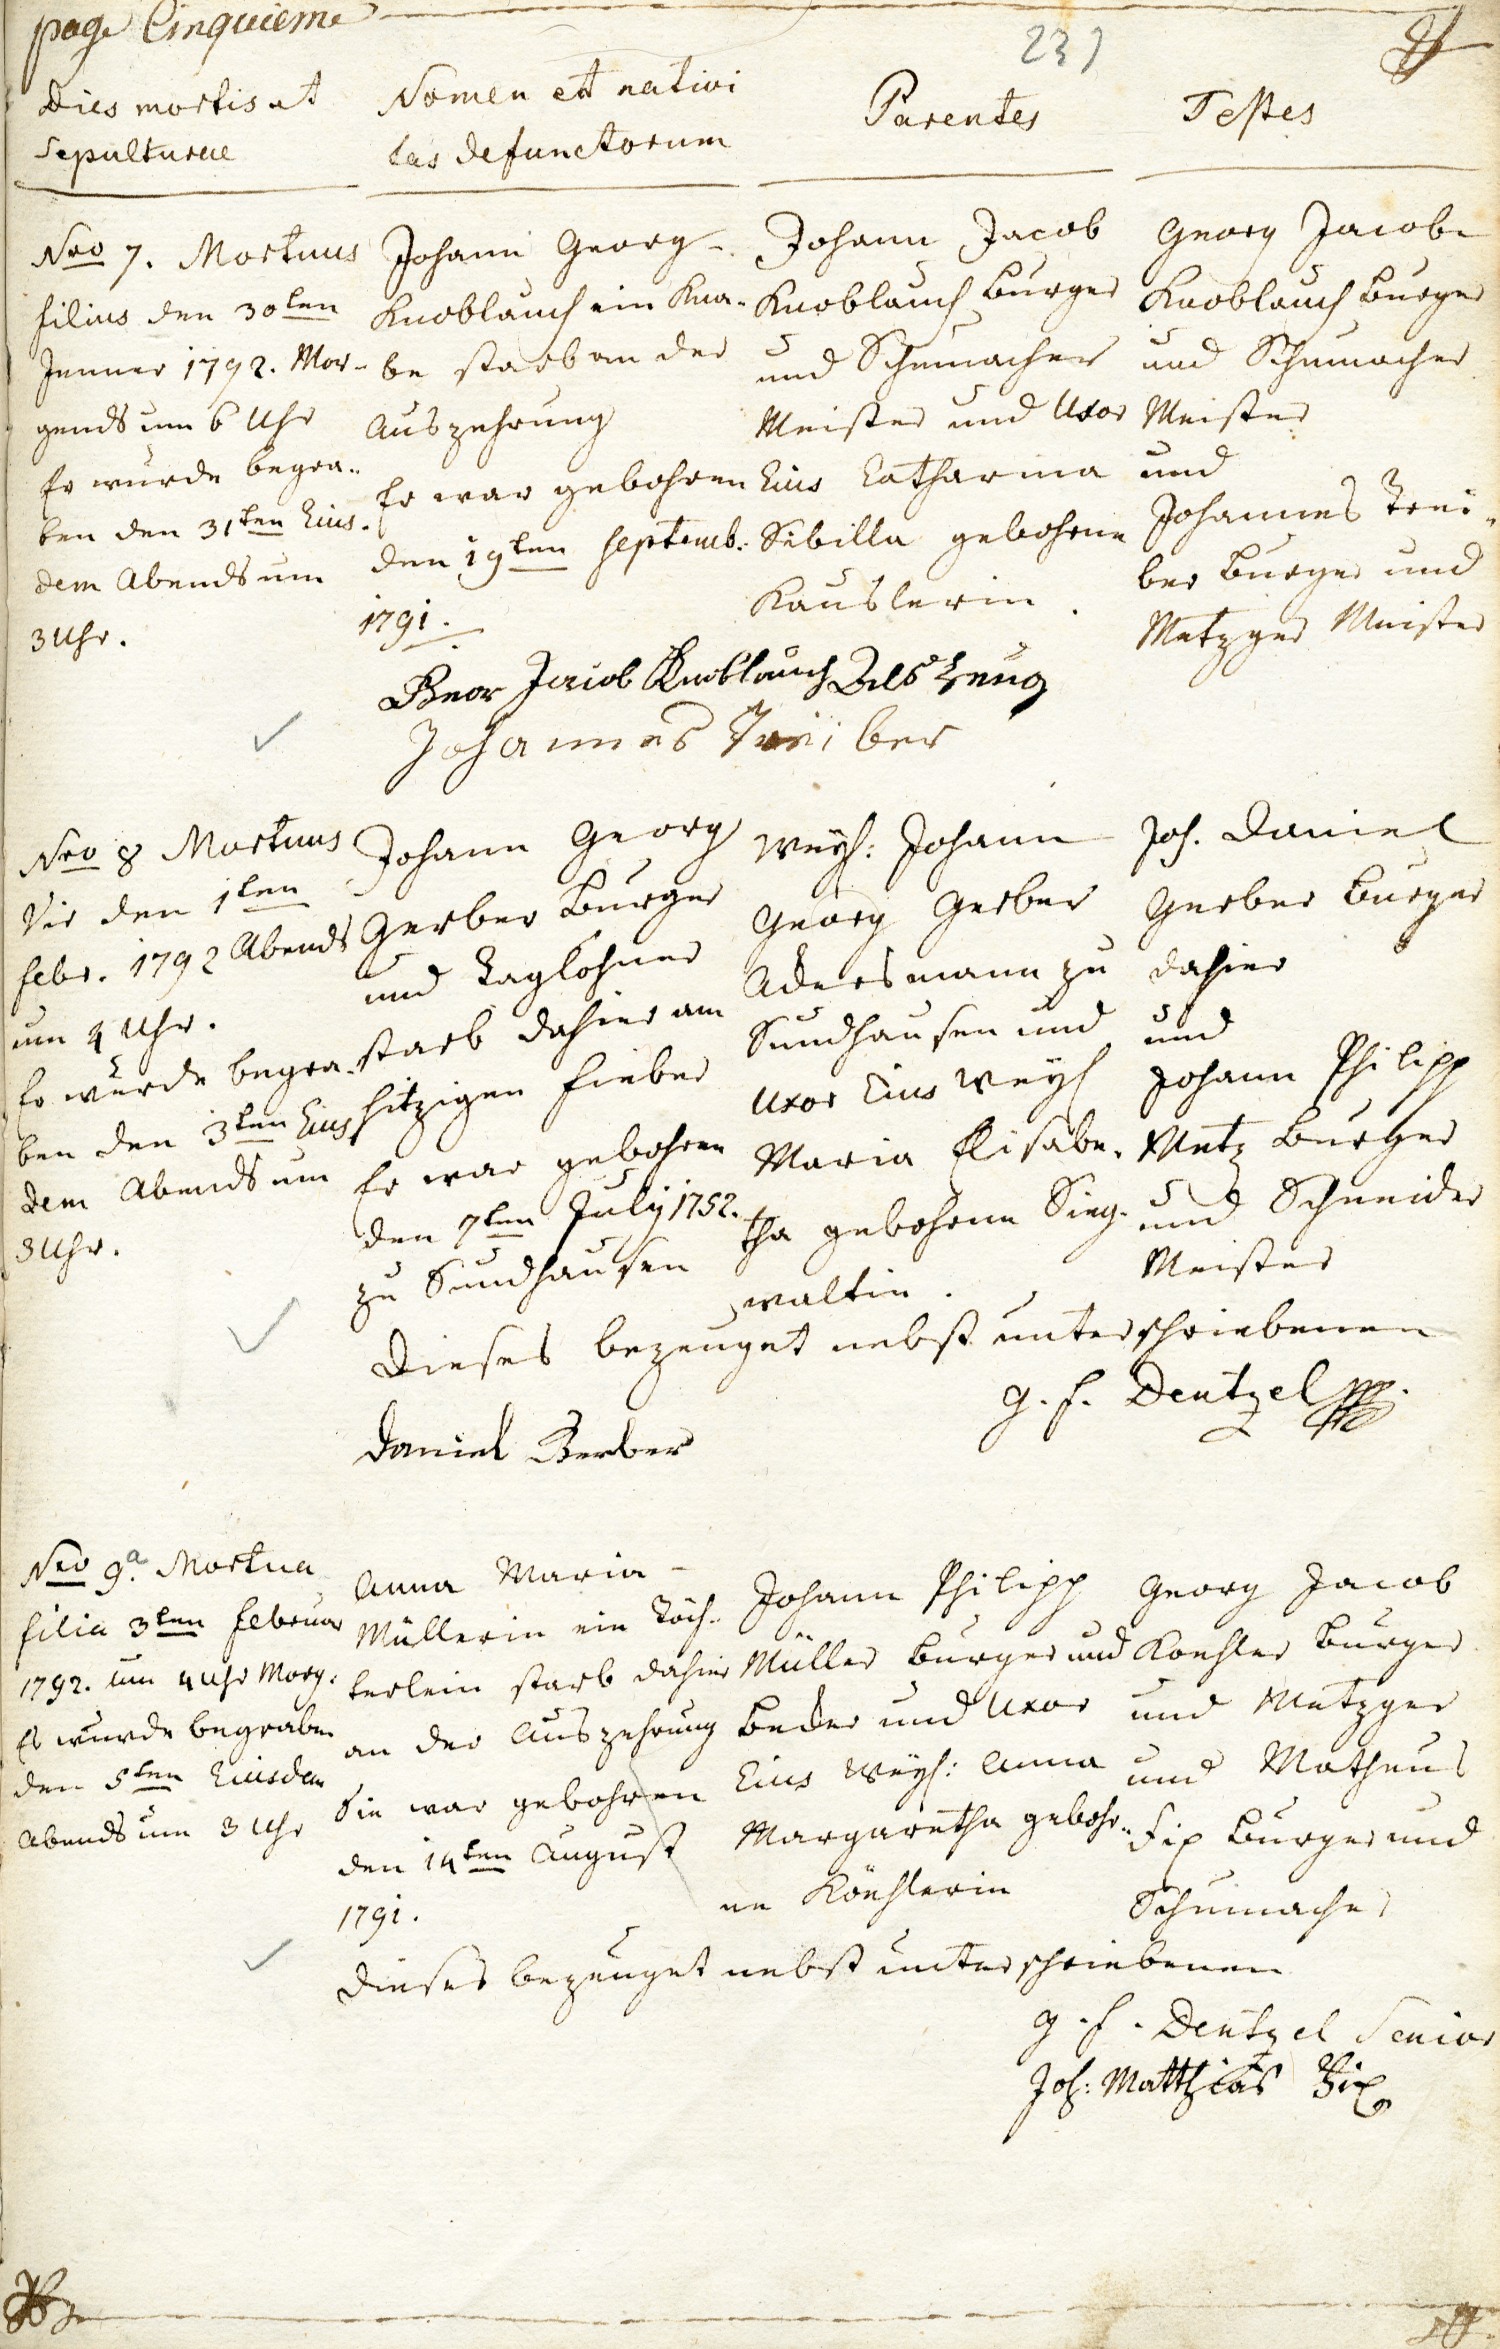 page Cinquieme
237
Dies mortis et
Sepulturae
Nomen et nativi
tas defunctorum
Parentes
Testes
Nro 7. Mortuus
filius den 30ten
Jenner 1792. Mor-
gends um 6 Uhr
Er wurde begra-
ben den 31ten Eius-
dem Abends um
3 Uhr.
Johann Georg
Knoblauch ein Kna-
be starb an der
Auszehrung
Er war gebohren
den 19ten Septemb.
1791.
Johann Jacob
Knoblauch Burger
und Schumacher
Meister und Uxor
Eius Catharina
Sibilla gebohrne
Kauslerin.
Georg Jacob
Knoblauch Burger
und Schumacher
Meister
und
Johannes Trei-
ber Burger und
Metzger Meister
Geor Jacob Knoblauch Als Zeug
Johannes Treiber
Nro 8 Mortuus
Vir den 1ten
Febr. 1792 Abends
um 4 Uhr.
Er wurde begra-
ben den 3ten Eius
dem Abends um
3 Uhr.
Johann Georg
Gerber Burger
und Taglohner
starb dahier am
hitzigen Fieber
Er war gebohren
den 7ten July 1752.
zu Sundhausen
Weyl: Johann
Georg Gerber
Ackersmann zu
Sundhausen und
Uxor Eius Weyl
Maria Elisabe-
tha gebohrne Sieg-
waltin.
Joh. Daniel
Gerber Burger
dahier
und
Johann Philipp
Metz Burger
und Schneider
Meister
Dieses bezeuget nebst unterschriebenen
G. F. Dentzel
Daniel Gerber
Nro 9a. Mortua
filia 3ten Februar
1792. um 4 Uhr Morg:
Es wurde begraben
den 5ten Eiusdem
Abends um 3 Uhr
Anna Maria
Müllerin ein Töch-
terlein starb dahier
an der Auszehrung
Sie war gebohren
den 14ten August
1791.
Johann Philipp
Müller Burger und
Becker und Uxor
Eius Weyl: Anna
Margaretha gebohr-
ne Köehlerin
Georg Jacob
Koehler Burger
und Metzger
und Matheus
Fix Burger und
Schumacher
Dieses bezeuget nebst unterschriebenen
G. F. Dentzel Senior
Joh: Matthias Fix